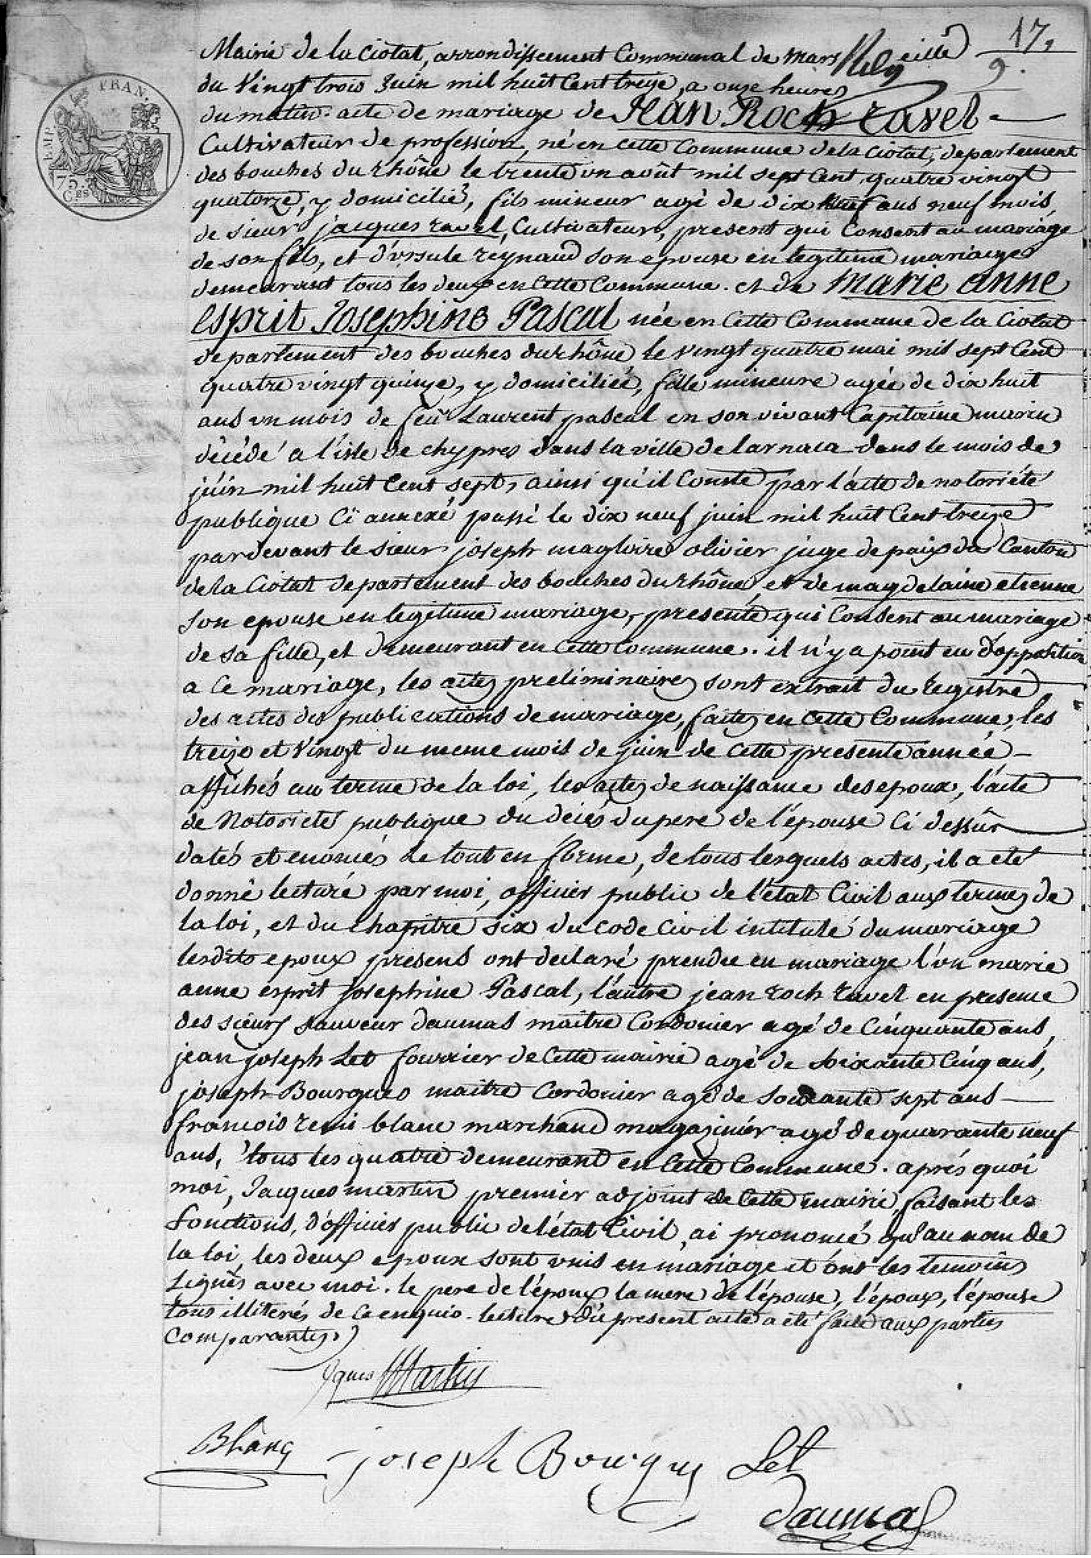 17.
9.
Mairie de la Ciotat, arrondissement Communal de Marseille
du Vingt trois Juin mil huit Cent treize, a onze heures
du matin. acte de mariage de Jean Roch Ravel
Cultivateur de profession, né en cette Commune de la Ciotat, departement
des bouches du rhône le trente un août mil sept Cent quatre vingt
quatorze, y domicilié, fils mineur agé de dix huit ans neuf mois,
de sieur jacques ravel, Cultivateur, present qui Consent au mariage
de son fils, et d'ursule reynaud son epouse en legitime mariage
demeurant tous les deux en cette Commune. et de marie anne
esprit Josephine Pascal née en Cette Commune de la Ciotat
departement des bouches du rhône le vingt quatre mai mil sept Cent
quatre vingt quinze, y domiciliée, fille mineure agée de dix huit
ans un mois de feu Laurent pascal en son vivant Capitaine marin
décédé a l'isle de chypres dans la ville de larnaca dans le mois de
juin mil huit Cent sept, ainsi qu'il Conste par l'acte de notoriété
publique Ci annexé passé le dix neuf juin mil huit Cent treize
pardevant le sieur joseph magloire olivier juge de paix du Canton
de la Ciotat departement des bouches du rhône, et de magdelaine etienne
son epouse en legitime mariage, presente qui Consent au mariage
de sa fille, et demeurant en cette Commune. il n'y a point eu d'opposition
a Ce mariage, les actes preliminaires sont extrait du registre
des actes des publications de mariage, faites en cette Commune, les
treize et Vingt du meme mois de juin de cette presente année
affichés au terme de la loi, les actes de naissance des epoux, l'acte
de Notorieté publique du décés du pere de l'épouse Ci dessûs
datés et enoncés le tout en forme, de tous lesquels actes, il a été
donné lecture par moi, officier public de l'état Civil aux termes de
la loi, et du chapitre six du code Civil intitulé du mariage
lesdits epoux présens ont declaré prendre en mariage l'un marie
anne esprit josephine Pascal, l'autre jean roch ravel en presence
des sieurs sauveur daumas maitre Cordonier agé de Cinquante ans,
jean joseph Let fourrier de Cette mairie agé de soixante Cinq ans,
joseph Bourgues maitre Cordonier agé de soixante sept ans
francois remi blanc marchand magazinier agé de quarante neuf
ans, tous les quatre demeurant en Cette Commune. aprés quoi
moi, Jacques martin premier adjoint de Cette mairie, faisant les
fonctions, d'officier public de l'état Civil, ai prononcé qu'au nom de
la loi, les deux epoux sont unis en mariage et ont les temoins
signés avec moi. le pere de l'époux la mere de l'épouse, l'époux, l'épouse
tous illiterés de Ce enquis. lecture du present acte a été faite aux parties
Comparantes.
Jques Martin
Blanq
joseph Bourgues
Let
daumas
EMP. FRAN.
75 Ces